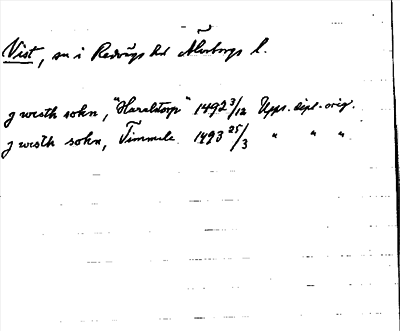 Vist, sn i Redvägs hd Älvsborgs l.
j wisth sokn, "Haraltorp" 1492 3/12 Upps. dipl. orig.
j wisth sokn, Timmele 1493 25/3 " " "